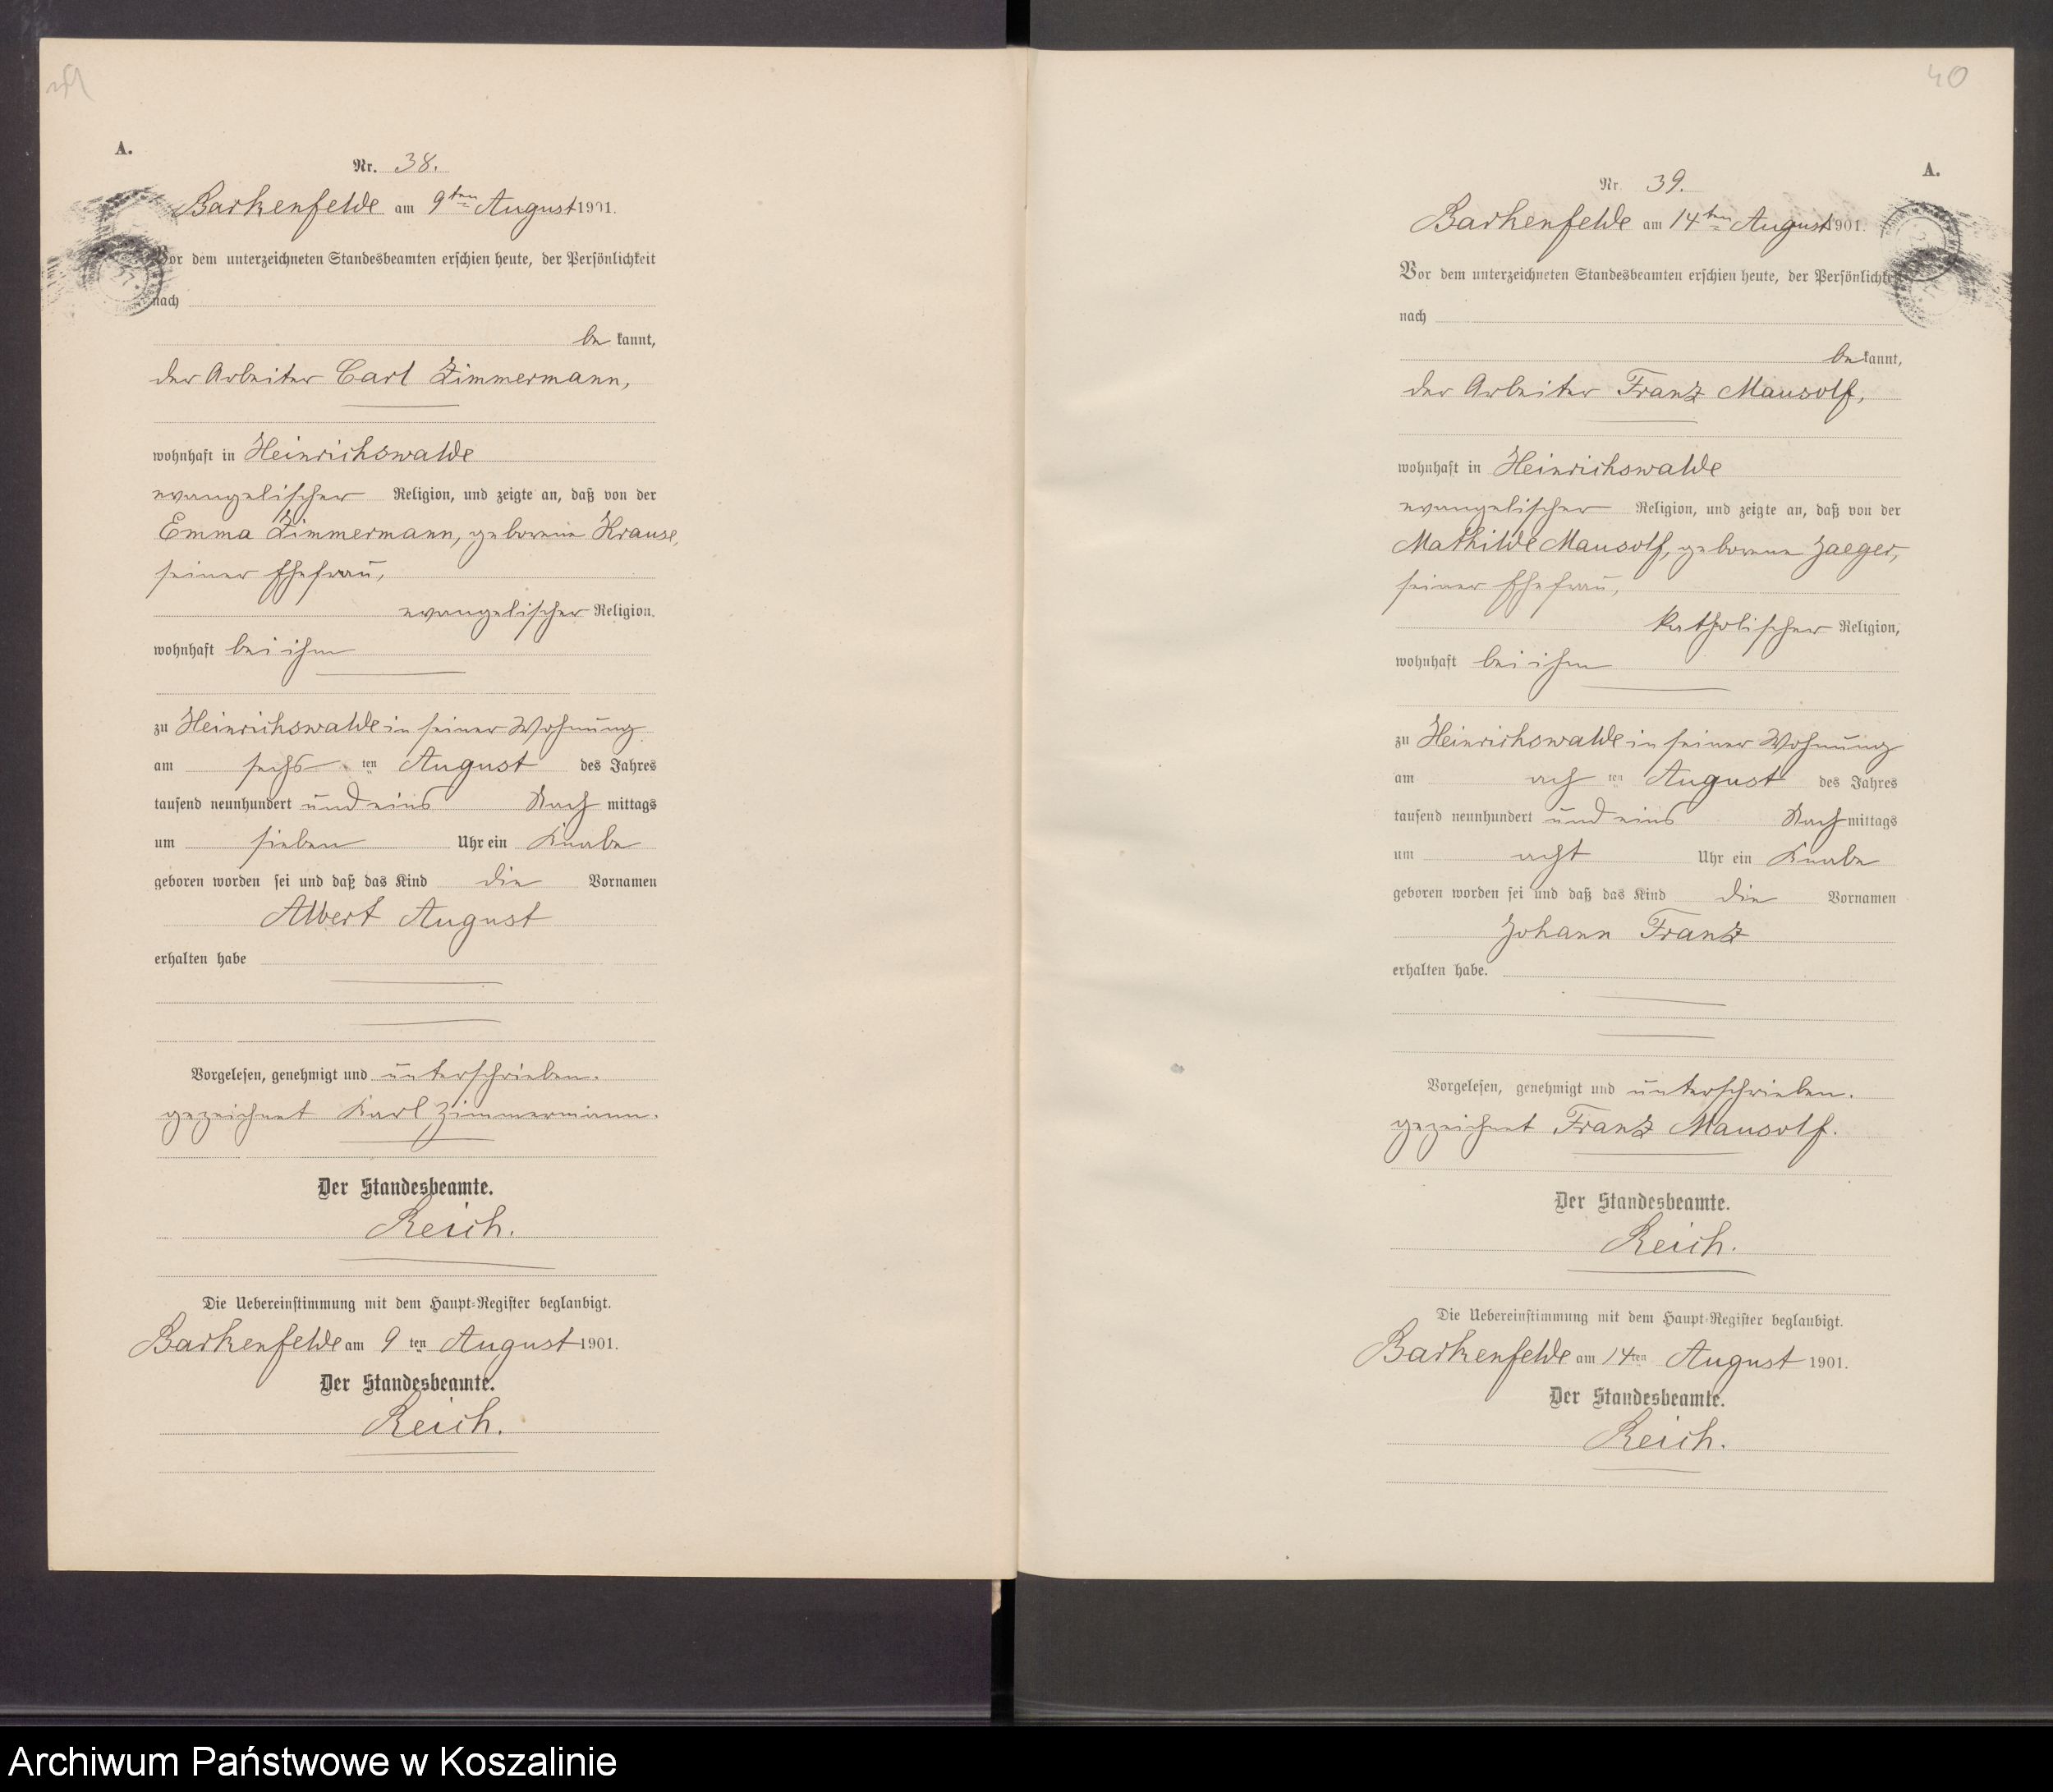 A.
Nr. 38.
Barkenfelde am 9ten August 1901.
Vor dem unterzeichneten Standesbeamten erschien heute, der Persönlichkeit
nach
be kannt,
der Arbeiter Carl Zimmermann,
wohnhaft in Heinrichswalde
evangelischer Religion, und zeigte an, daß von der
Emma Zimmermann, geborene Krause,
seiner Ehefrau,
evangelischer Religion.
wohnhaft bei ihm
zu Heinrichswalde in seiner Wohnung
am sechs ten August des Jahres
tausend neunhundert und eins Nach mittags
um sieben Uhr ein Knabe
geboren worden sei und daß das Kind die Vornamen
Albert August
erhalten habe
Vorgelesen, genehmigt und unterschrieben.
gezeichnet Karl Zimmermann.
Der Standesbeamte.
Reich.
Die Uebereinstimmung mit dem Haupt-Register beglaubigt.
Barkenfelde am 9 ten August 1901.
Der Standesbeamte.
Reich.
40
A.
Nr. 39.
Barkenfelde am 14ten August 1901.
Vor dem unterzeichneten Standesbeamten erschien heute, der Persönlichkeit
nach
be kannt,
der Arbeiter Franz Mausolf,
wohnhaft in Heinrichswalde
evangelischer Religion, und zeigte an, daß von der
Mathilde Mausolf, geborene Jaeger,
seiner Ehefrau,
katholischer Religion,
wohnhaft bei ihm
zu Heinrichswalde in seiner Wohnung
am ach ten August des Jahres
tausend neunhundert und eins Nach mittags
um acht Uhr ein Knabe
geboren worden sei und daß das Kind die Vornamen
Johann Franz
erhalten habe.
Vorgelesen, genehmigt und unterschrieben.
gezeichnet Franz Mausolf.
Der Standesbeamte.
Reich.
Die Uebereinstimmung mit dem Haupt-Register beglaubigt.
Barkenfelde am 14 ten August 1901.
Der Standesbeamte.
Reich.
Archiwum Państwowe w Koszalinie